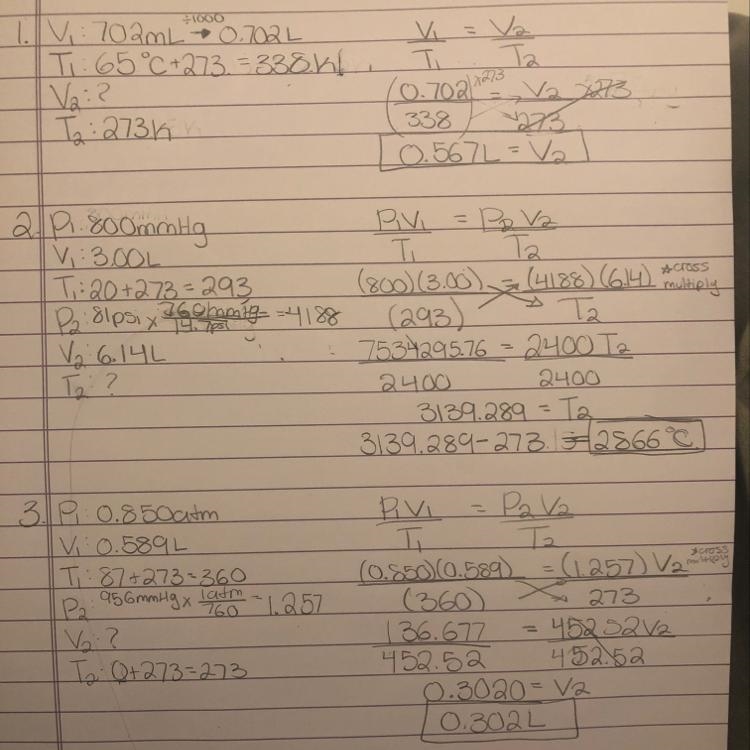 1. V₁: 702mL ÷1000 → 0.702L
T₁: 65°C+273 = 338K
V₂: ?
T₂: 273K
V₁/T₁ = V₂/T₂
(0.702/338) ×273 = V₂/273 ×273
0.567L = V₂
2. P₁: 800mmHg
V₁: 3.00L
T₁: 20+273=293
P₂: 81psi × 760mmHg/14.7psi = 4188
V₂: 6.14L
T₂: ?
P₁V₁/T₁ = P₂V₂/T₂
(800)(3.00)/(293) = (4188)(6.14)/T₂ *cross multiply
7534295.76/2400 = 2400T₂/2400
3139.289 = T₂
3139.289-273 = 2866°C
3. P₁: 0.850atm
V₁: 0.589L
T₁: 87+273=360
P₂: 956mmHg × 1atm/760 = 1.257
V₂: ?
T₂: 0+273=273
P₁V₁/T₁ = P₂V₂/T₂
(0.850)(0.589)/(360) = (1.257)V₂/273 *cross multiply
136.677/452.52 = 452.52V₂/452.52
0.3020 = V₂
0.302L